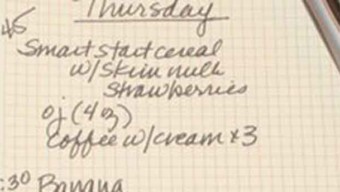 Thursday
45
Smart start cereal
w/skim milk
strawberries
oj (4 oz)
coffee w/cream x3
:30 Banana